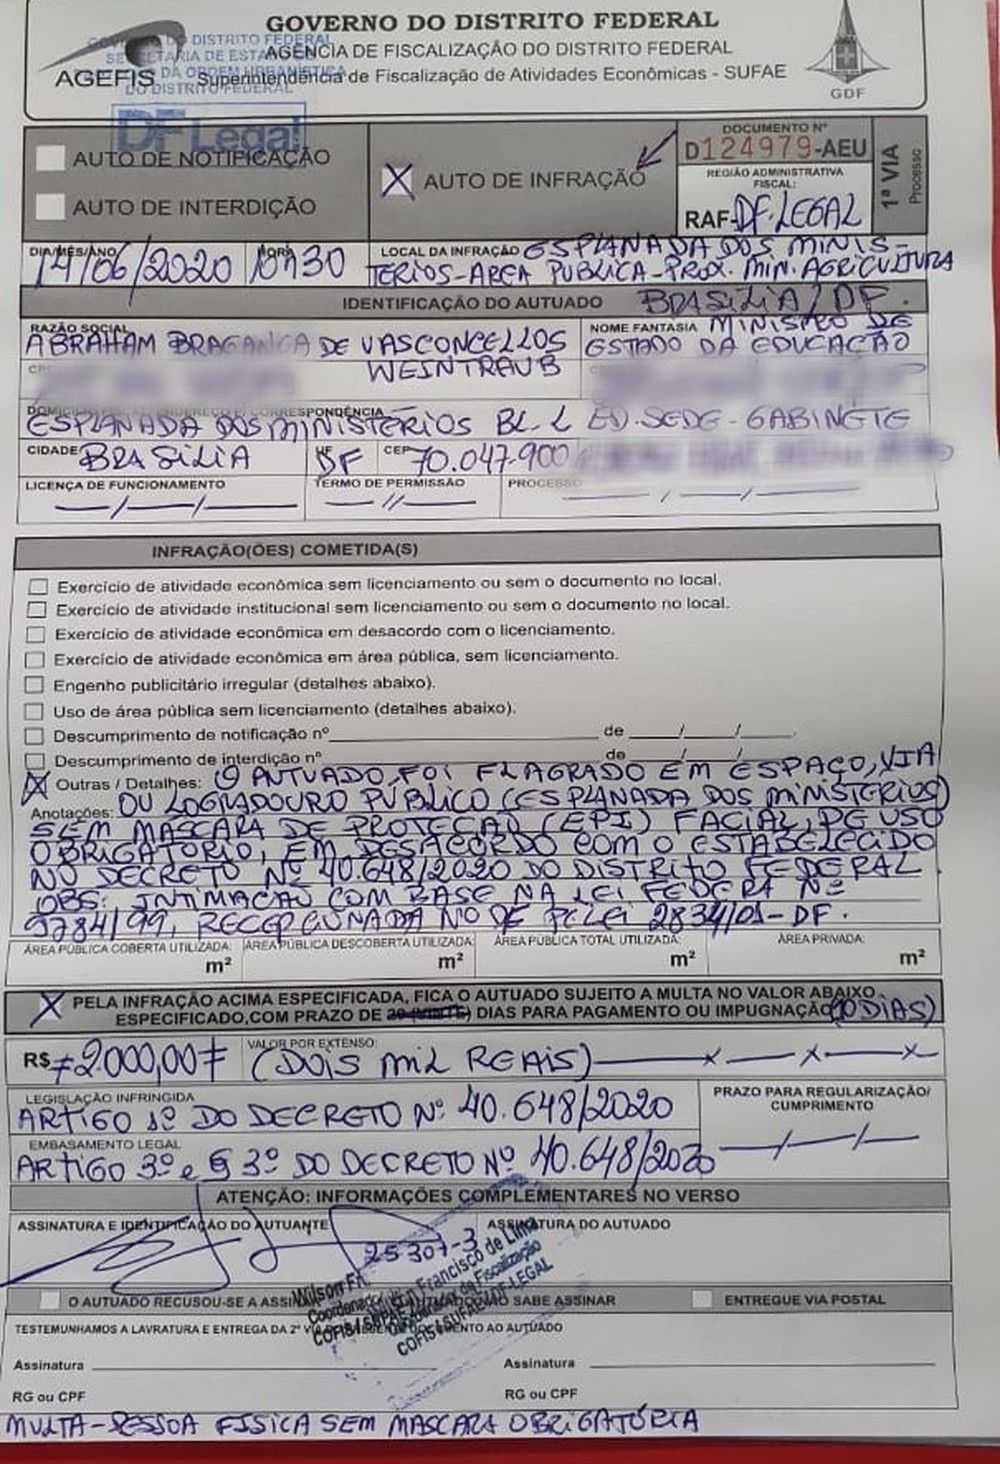 GOVERNO DO DISTRITO FEDERAL
AGÊNCIA DE FISCALIZAÇÃO DO DISTRITO FEDERAL
Superintendência de Fiscalização de Atividades Econômicas - SUFAE
AGEFIS
GDF
DISTRITO FEDERAL
SECRETARIA DE ESTADO
DA ORDEM URBANÍSTICA
DO DISTRITO FEDERAL
DF Legal
AUTO DE NOTIFICAÇÃO
AUTO DE INTERDIÇÃO
X AUTO DE INFRAÇÃO
DOCUMENTO Nº
D124979-AEU
REGIÃO ADMINISTRATIVA
FISCAL:
RAF-DF.LEGAL
1ª VIA
Processo
DIA/MÊS/ANO 14/06/2020
HORA 10h30
LOCAL DA INFRAÇÃO ESPLANADA DOS MINIS-
TÉRIOS-AREA PÚBLICA-PROX. MIN. AGRICULTURA
BRASÍLIA/DF.
IDENTIFICAÇÃO DO AUTUADO
RAZÃO SOCIAL
ABRAHAM BRAGANÇA DE VASCONCELLOS
WEINTRAUB
NOME FANTASIA MINISTRO DE
ESTADO DA EDUCAÇÃO
CORRESPONDÊNCIA
ESPLANADA DOS MINISTÉRIOS BL. L ED. SEDE - GABINETE
CIDADE BRASÍLIA
UF DF
CEP 70.047-900
LICENÇA DE FUNCIONAMENTO
TERMO DE PERMISSÃO
PROCESSO
INFRAÇÃO(ÕES) COMETIDA(S)
Exercício de atividade econômica sem licenciamento ou sem o documento no local.
Exercício de atividade institucional sem licenciamento ou sem o documento no local.
Exercício de atividade econômica em desacordo com o licenciamento.
Exercício de atividade econômica em área pública, sem licenciamento.
Engenho publicitário irregular (detalhes abaixo).
Uso de área pública sem licenciamento (detalhes abaixo).
Descumprimento de notificação nº de / /
Descumprimento de interdição nº de / /
X Outras / Detalhes: O AUTUADO, FOI FLAGRADO EM ESPAÇO, VIA
Anotações: OU LOGRADOURO PÚBLICO (ESPLANADA DOS MINSTERIOS)
SEM MASCARA DE PROTEÇÃO (EPI) FACIAL, DE USO
OBRIGATÓRIO, EM DESACORDO COM O ESTABELECIDO
NO DECRETO Nº 40.648/2020 DO DISTRITO FEDERAL
OBS: INTIMAÇÃO COM BASE NA LEI FEDERA Nº
9784/99, RECEPCIONADA NO DF PELEI 2834/01-DF.
ÁREA PÚBLICA COBERTA UTILIZADA: m²
ÁREA PÚBLICA DESCOBERTA UTILIZADA: m²
ÁREA PÚBLICA TOTAL UTILIZADA: m²
ÁREA PRIVADA: m²
X PELA INFRAÇÃO ACIMA ESPECIFICADA, FICA O AUTUADO SUJEITO A MULTA NO VALOR ABAIXO
ESPECIFICADO, COM PRAZO DE 20 (VINTE) DIAS PARA PAGAMENTO OU IMPUGNAÇÃO (10 DIAS)
R$ 2.000,00
VALOR POR EXTENSO:
(DOIS MIL REAIS)
LEGISLAÇÃO INFRINGIDA
ARTIGO 1º DO DECRETO Nº 40.648/2020
PRAZO PARA REGULARIZAÇÃO/
CUMPRIMENTO
EMBASAMENTO LEGAL
ARTIGO 3º e § 3º DO DECRETO Nº 40.648/2020
ATENÇÃO: INFORMAÇÕES COMPLEMENTARES NO VERSO
ASSINATURA E IDENTIFICAÇÃO DO AUTUANTE
25307-3
ASSINATURA DO AUTUADO
Francisco de Lima
Coordenador de Fiscalização
COFIS/SUFAE/DF-LEGAL
O AUTUADO RECUSOU-SE A ASSINAR
NÃO SABE ASSINAR
ENTREGUE VIA POSTAL
TESTEMUNHAMOS A LAVRATURA E ENTREGA DA 2ª VIA AO AUTUADO
Assinatura
Assinatura
RG ou CPF
RG ou CPF
MULTA-PESSOA FÍSICA SEM MASCARA OBRIGATÓRIA